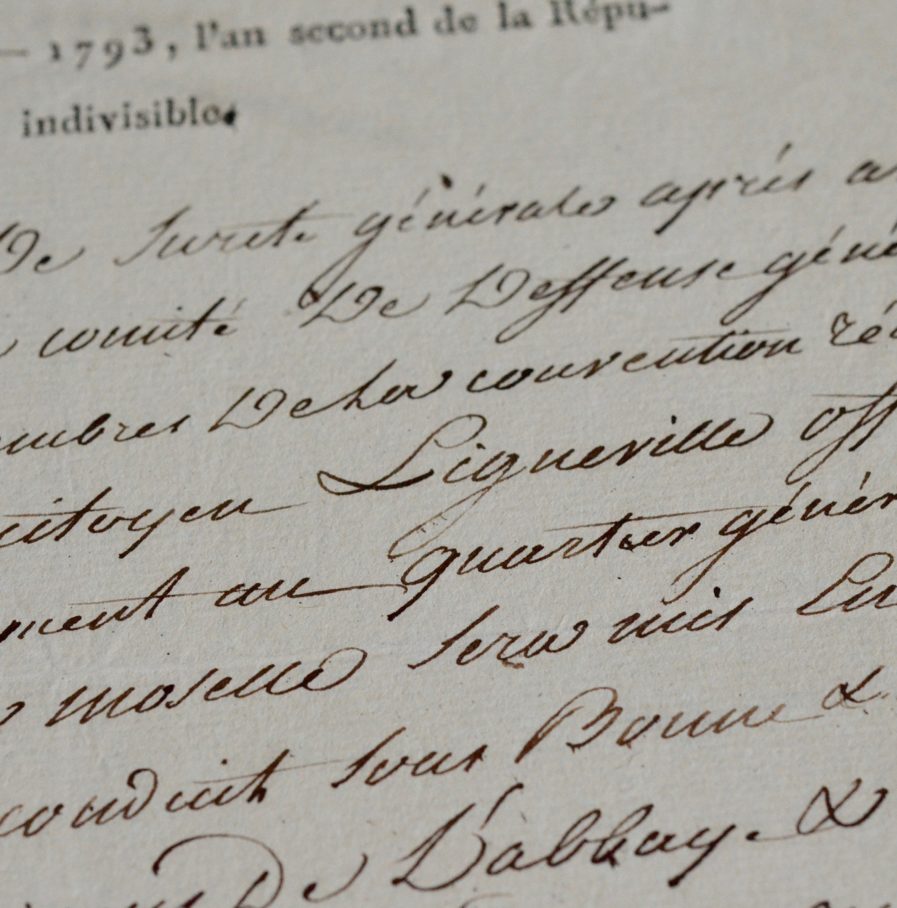 — 1793, l'an second de la Répu-
indivisible.
De Sureté générale après a
comité De Deffense géné
mbres De la convention ré
citoyen Ligneville off
ment au quartier génér
moselle sera mis En
conduit sous Bonne &
De L'abbaye &